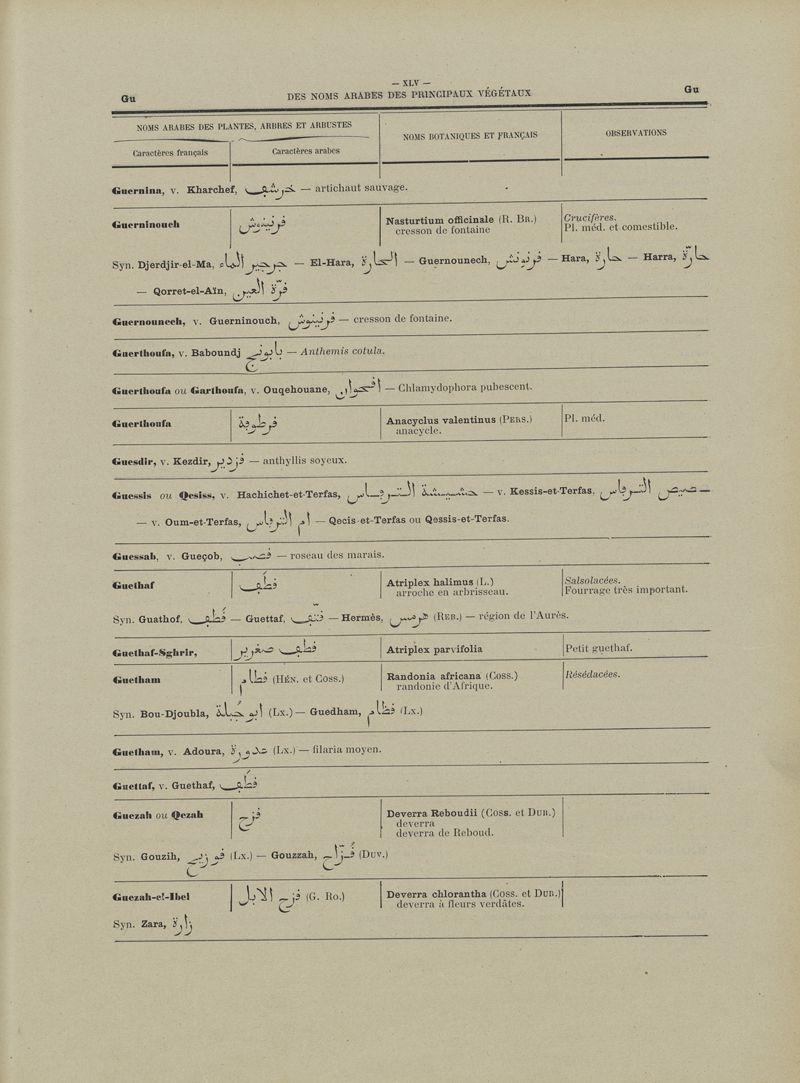 — XLV —
Gu DES NOMS ARABES DES PRINCIPAUX VÉGÉTAUX Gu
NOMS ARABES DES PLANTES, ARBRES ET ARBUSTES
NOMS BOTANIQUES ET FRANÇAIS
OBSERVATIONS
Caractères français
Caractères arabes
Guernina, v. Kharchef, خرشف — artichaut sauvage.
Guerninouch فرنينوش Nasturtium officinale (R. Br.) Crucifères.
cresson de fontaine Pl. méd. et comestible.
Syn. Djerdjir-el-Ma, جرجير الماء — El-Hara, الحارة — Guernounech, فرنونش — Hara, حارة — Harra, حارّة
— Qorret-el-Aïn, فرّة العين
Guernounech, v. Guerninouch, فرنينوش — cresson de fontaine.
Guerthoufa, v. Baboundj بابونج — Anthemis cotula.
Guerthoufa ou Garthoufa, v. Ouqehouane, افحوان — Chlamydophora pubescent.
Guerthoufa فرطوفة Anacyclus valentinus (Pers.) Pl. méd.
anacycle.
Guesdir, v. Kezdir, فزدير — anthyllis soyeux.
Guessis ou Qesiss, v. Hachichet-et-Terfas, حشيشة الترفاس — v. Kessis-et-Terfas, الترفاس
— v. Oum-et-Terfas, ام الترفاس — Qecis-et-Terfas ou Qessis-et-Terfas.
Guessab, v. Gueçob, فصب — roseau des marais.
Guethaf فطف Atriplex halimus (L.) Salsolacées.
arroche en arbrisseau. Fourrage très important.
Syn. Guathof, فطف — Guettaf, فتف — Hermès, هرمس (Reb.) — région de l'Aurès.
Guethaf-Sghrir, فطف صغرير Atriplex parvifolia Petit guethaf.
Guetham فطام (Hén. et Coss.) Randonia africana (Coss.) Résédacées.
randonie d'Afrique.
Syn. Bou-Djoubla, ابو جبلة (Lx.) — Guedham, فظام (Lx.)
Guetham, v. Adoura, عدورة (Lx.) — filaria moyen.
Guettaf, v. Guethaf, فطف
Guezah ou Qezah فزح Deverra Reboudii (Coss. et Dur.)
deverra
deverra de Reboud.
Syn. Gouzih, فوزيح (Lx.) — Gouzzah, فزّاح (Duv.)
Guezah-el-Ibel فزح الابل (G. Ro.) Deverra chlorantha (Coss. et Dur.)
deverra à fleurs verdâtes.
Syn. Zara, زارة